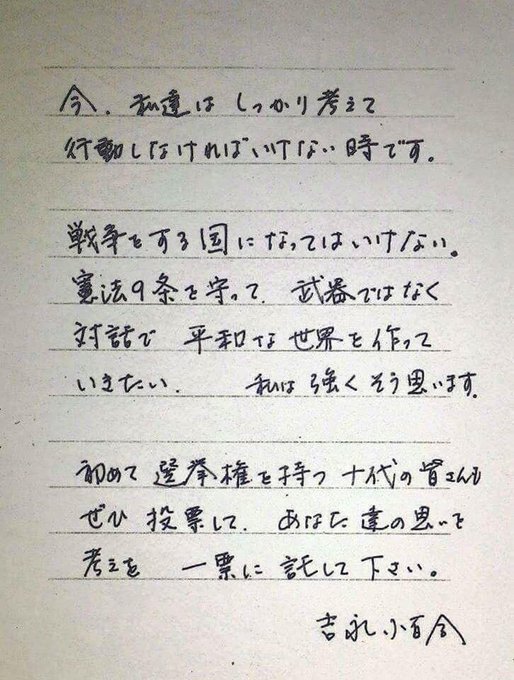 今、私達は しっかり考えて
行動しなければいけない時です。
戦争をする国になってはいけない。
憲法9条を守って、武器ではなく
対話で 平和な世界を作って
いきたい、 私は強くそう思います。
初めて選挙権を持つ十代の皆さんも
ぜひ投票して、あなた達の思いを
考えを 一票に託して下さい。
吉永小百合